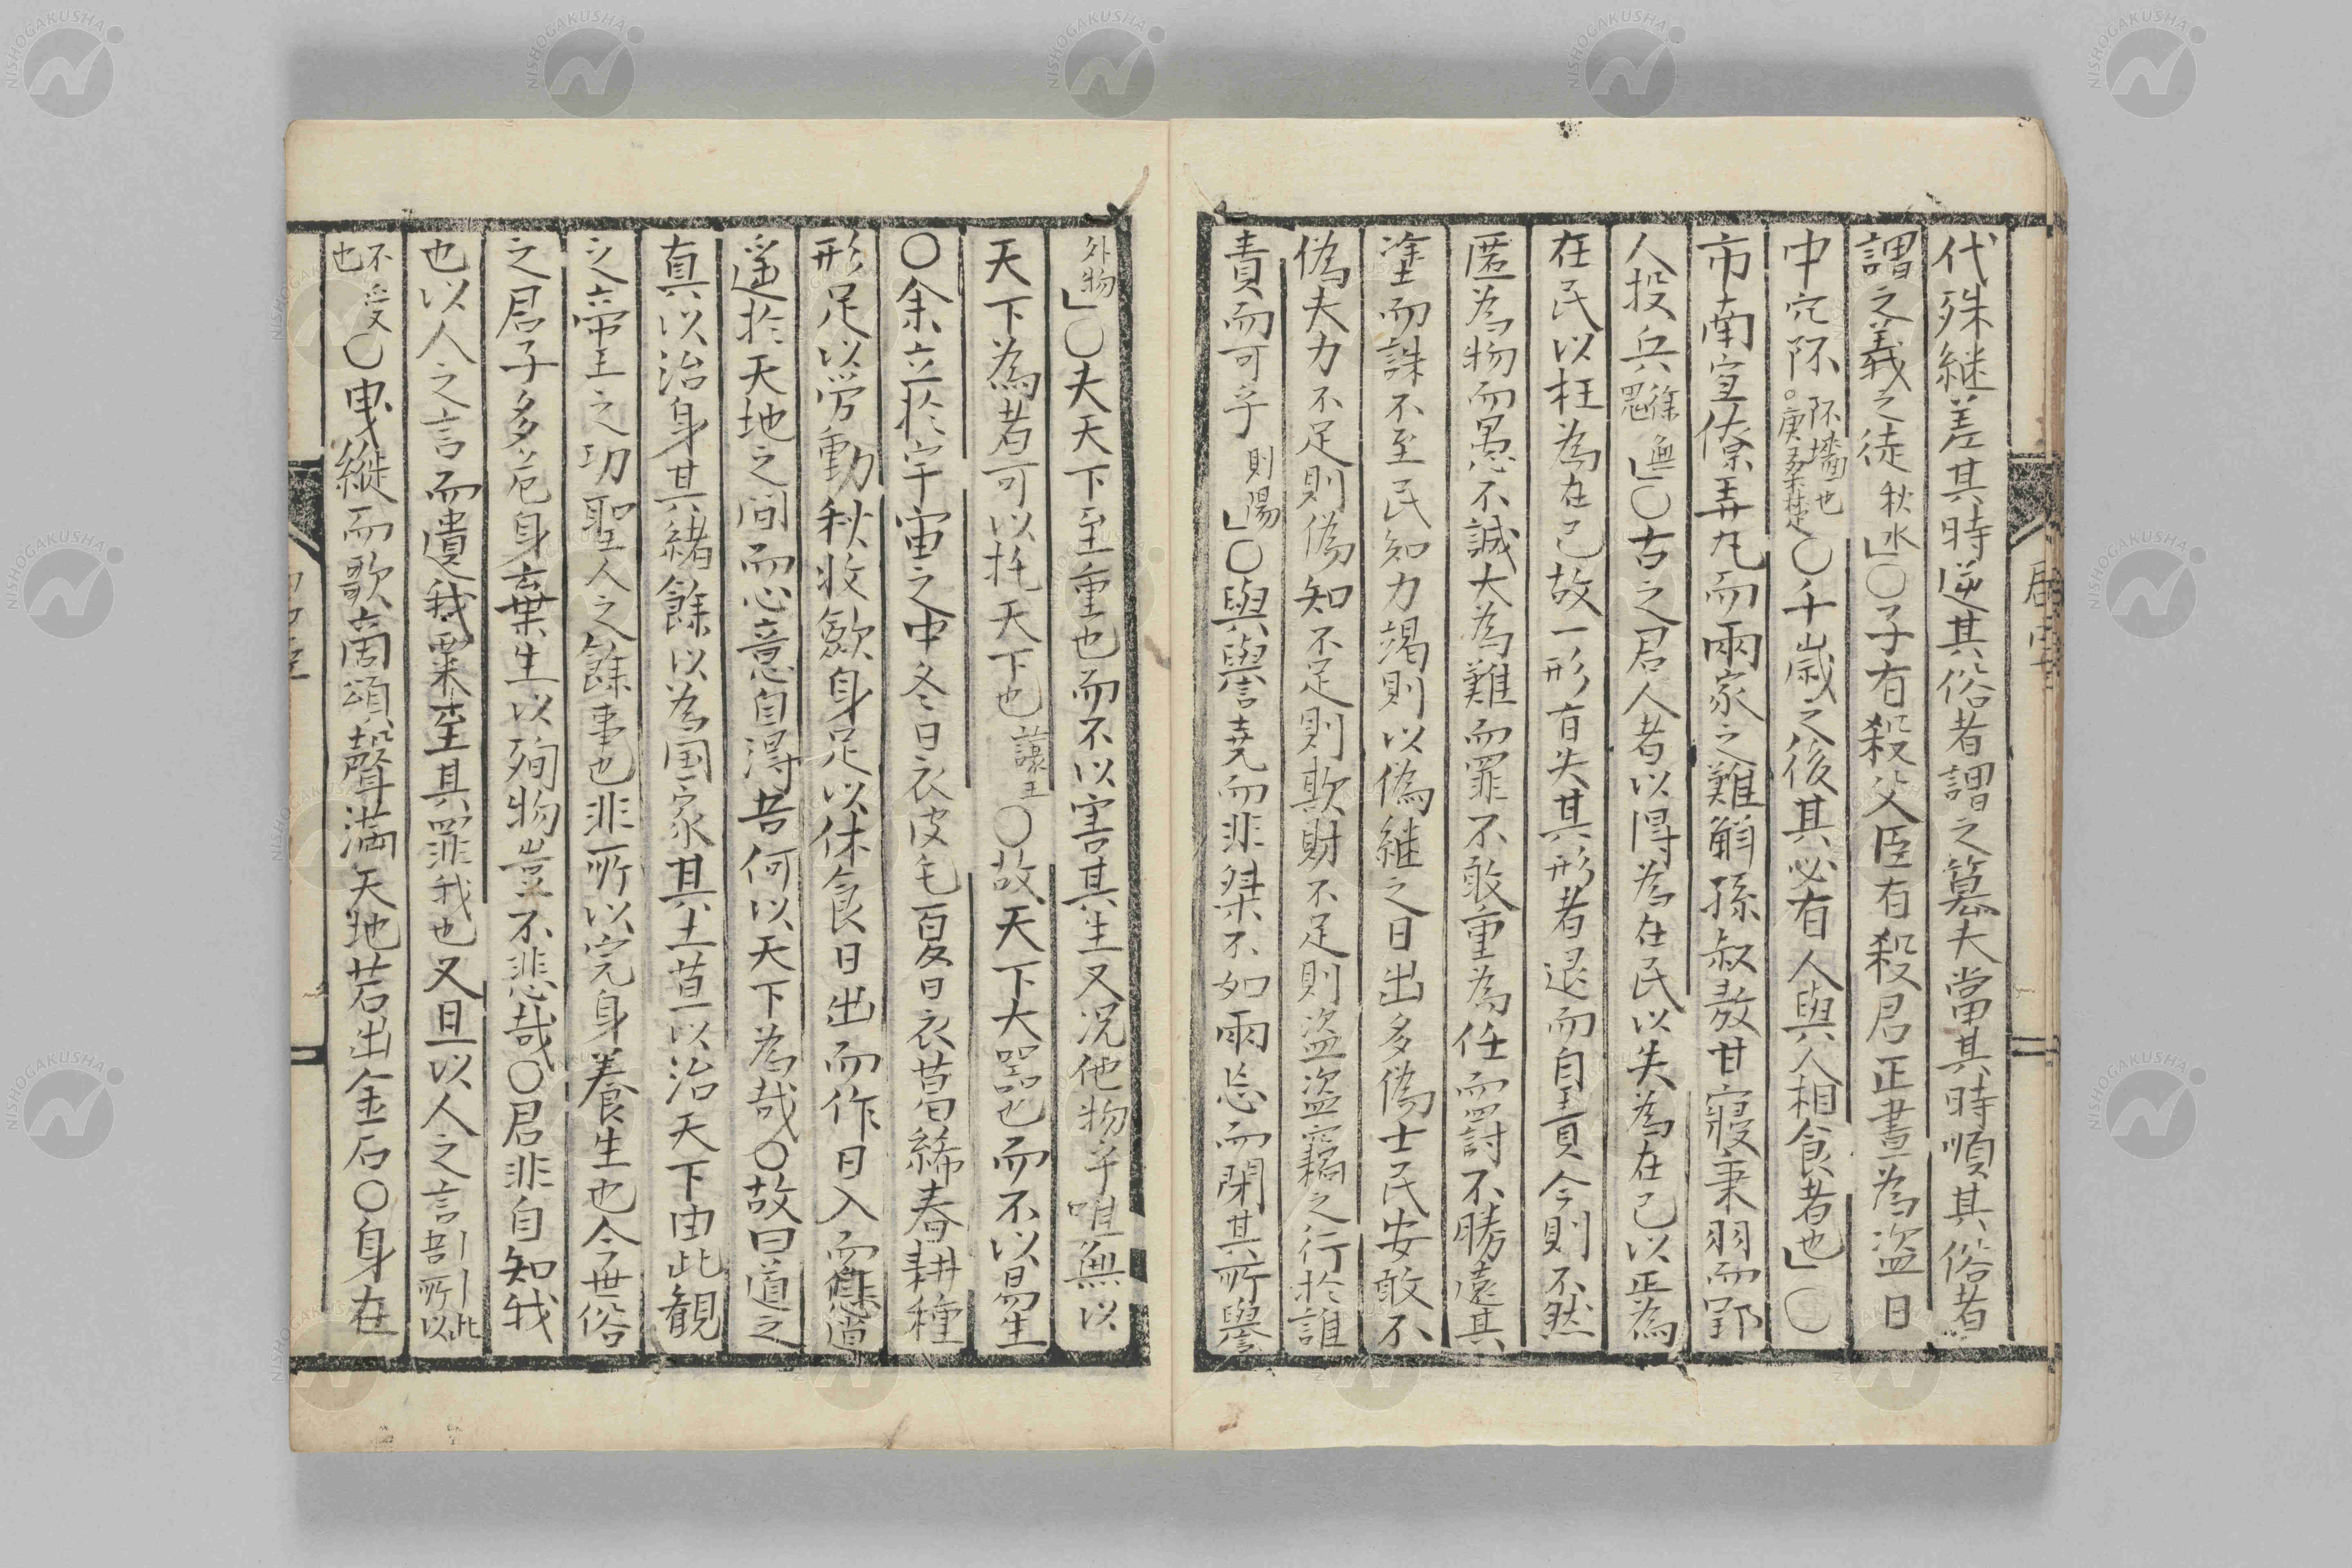 代殊継差其時逆其俗者謂之篡夫當其時順其俗者
謂之義之徒秋水」○子有殺父臣有殺君正晝為盗日
中穴阫阫墻也○庚桑楚○千歳之後其必有人與人相食者也」○
市南宜僚弄丸而兩家之難解孫叔敖甘寝秉羽而郢
人投兵徐無鬼」○古之君人者以得為在民以失為在己以正為
在民以枉為在己故一形有失其形者退而自責今則不然
匿為物而愚不誠大為難而罪不敢重為任而罰不勝遠其
塗而誅不至民知力竭則以偽継之日出多偽士民安敢不
偽夫力不足則偽知不足則欺財不足則盗盗竊之行於誰
責而可乎則陽」○與譽堯而非桀不如兩忘而閉其所譽
外物」○夫天下至重也而不以害其生又况他物乎唯無以
天下為者可以托天下也讓王○故天下大器也而不以易生
○余立於宇宙之中冬日衣皮毛夏日衣葛絺春耕種
形足以労動秋收歛身足以休食日出而作日入而息逍
遥於天地之間而心意自得吾何以天下為哉○故曰道之
真以治身其緒餘以為国家其土苴以治天下由此観
之帝王之功聖人之餘事也非所以完身養生也今世俗
之君子多危身棄生以殉物豈不悲哉○君非自知我
也以人之言而遺我粟至其罪我也又且以人之言此吾所以
不受也○曳縰而歌商頌聲満天地若出金石○身在
NISHOGAKUSHA